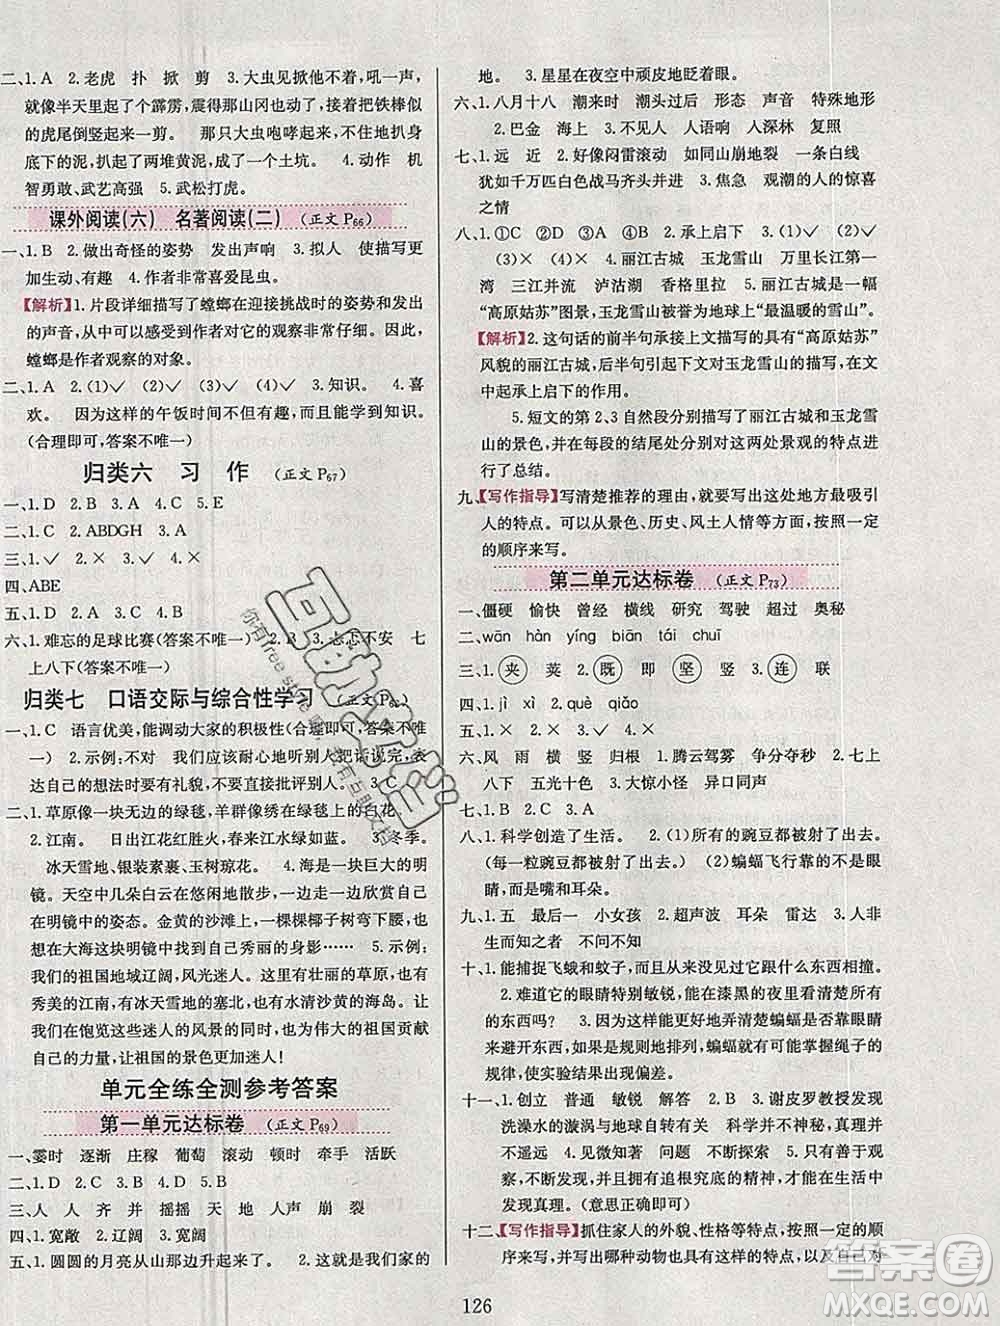 二、1. A　2. 老虎　扑　掀　剪　3. 大虫见掀他不着,吼一声,
就像半天里起个霹雳,震得那山冈也动了。接着把铁棒似
的虎尾倒竖起来一剪。　那只大虫咆哮起来,用两只前爪
把身底下的泥,扒起了两堆黄泥,成了一个土坑。　4. 动作　机
智勇敢、武艺高强　5. 武松打虎。
课外阅读(六)　名著阅读(二)　(正文 P66)
一、1. B　2. 做出奇怪的姿势　发出声响　3. 拟人　使描写更
加生动、有趣　4. 作者非常喜爱昆虫。
【解析】1. 片段详细描写了螳螂在迎接挑战时的姿势和发出
的声音,从中可以感受到作者对它的观察非常仔细。因此,
螳螂是作者观察的对象。
二、1. A　2. (1)✓　(2)✓　(3)×　(4)✓　3. 知识。　4. 喜
欢。　因为这样的午饭时间不但有趣,而且能学到知识。
(合理即可,答案不唯一)
归类六　习　作　(正文 P67)
一、1. D　2. B　3. A　4. C　5. E
二、1. C　2. ABDGH　3. D
三、1. ✓　2. ×　3. ✓　4. ×
四、ABE
五、1. D　2. A　3. C　4. B
六、1. 难忘的足球比赛(答案不唯一)　2. B　3. 忐忑不安　七
上八下(答案不唯一)
归类七　口语交际与综合性学习　(正文
一、1. C　语言优美,能调动大家的积极性(合理即可,答案不唯
一)　2. 示例:不对　我们应该耐心地听别人把话说完,表
达自己的想法时要有礼貌,不要直接批评别人。　3. C
二、1. 草原像一块无边的绿毯,羊群就像绣在绿毯上的白花。
2. 江南。　日出江花红胜火,春来江水绿如蓝。　3. 冬季。
冰天雪地、银装素裹、玉树琼花。　4. 海是一块巨大的明
镜。天空中几朵白云在悠闲地散步,一定是在欣赏自己映
在明镜中的姿态。金黄的沙滩上,一棵棵椰子树弯下了腰,
想在大海这块明镜中找到自己秀丽的身影……　5. 示例:
我们的祖国地域辽阔,风光迷人。这里有壮丽的草原,有
秀美的江南,有冰天雪地的塞北,也有水清沙黄的海岛。让
我们在饱览这些迷人的风景的同时,也为伟大的祖国贡献
自己的力量,让祖国的景色更加迷人!
单元全练全测参考答案
第一单元达标卷　(正文 P69)
一、霎时　逐渐　庄稼　葡萄　滚动　顿时　牵手　活跃
二、1. D　2. C　3. A　4. B
三、人　人　齐　并　摇　摇　天　地　人　声　崩　裂
四、1. 宽敞　2. 辽阔　3. 宽阔
五、1. 圆圆的月亮从山那边升起来了。　2. 这就是我们家的
地。　3. 星星在夜空中顽皮地眨着眼。
六、1. 八月十八　潮来时　潮头过后　形态　声音　特殊地形
2. 巴金　海上　3. 不见人　人语响　入深林　复照
七、1. 远　近　2. 好像闷雷滚动　如同山崩地裂　一条白线
犹如千万匹白色战马齐头并进　3. 焦急　观潮的人的惊喜
之情
八、1. ①C　②D　③A　④B　2. 承上启下　3. (1)✓　(2)✓
(3)×　(4)×　4. 丽江古城　玉龙雪山　万里长江第一
湾　三江并流　泸沽湖　香格里拉　5. 丽江古城堪称
“高原姑苏”,玉龙雪山被誉为地球上“最温暖的雪山”。
【解析】2. 这句话的前半句承接上文描写的具有“高原姑苏”
风貌的丽江古城,后半句引起下文对玉龙雪山的描写,在文
中起到承上启下的作用。
5. 短文的第 2、3 自然段分别描写了丽江古城和玉龙雪
山的景色,并在每段的结尾处分别对这两处景观的特点进
行了总结。
九、【写作指导】写清楚推荐的理由,就要写出这处地方最吸引
人的特点。可以从景色、历史、风土人情等方面,按照一定
的顺序来写。
第二单元达标卷　(正文 P73)
一、僵硬　愉快　曾经　横线　研究　驾驶　超过　奥秘
二、wān　hàn　yíng　biān　tái　chuī
三、1. 夹　荚　2. 既　即　坚　竖　3. 连　联
四、1. jì　xì　2. què　qiǎo
五、1. ✓　2. ×　3. ×　4. ✓
六、风　雨　横　竖　归根　1. 腾云驾雾　争分夺秒　2. 七上
八下　五光十色　3. 大惊小怪　异口同声
七、1. B　2. C　3. A
八、1. 科学创造了生活。　2. (1)所有的豌豆都被射了出去。
(每一粒豌豆都被射了出去。)　(2)蝙蝠飞行靠的不是眼
睛,而是嘴和耳朵。
九、1. 五　最后一　小女孩　2. 超声波　耳朵　雷达　3. 人非
生而知之者　不问不知
十、1. 能捕捉飞蛾和蚊子,而且无论怎么飞,从来没见过它跟什么东西相撞。
2. 难道它的眼睛特别敏锐,能在漆黑的夜里看清楚所有
的东西吗?　3. 因为这样能更好地弄清楚蝙蝠是不是用眼睛
来躲避开东西。如果有规律地排列,蝙蝠可能会掌握绳子的具体位置,
使实验结果出现偏差。
十一、1. 创立　普通　敏锐　解开　2. B　3. 谢皮罗教授发现
洗澡水的漩涡与地球自转有关　科学并不神秘,真理并
不遥远。　4. 见微知著　5. 示例:我们要善于观
察,不断地提出问题,并拥有追根究底的品质,才能在生活中
发现真理。(意思正确即可)
十二、【写作指导】抓住家人的外貌、性格等特点,按照一定的顺
序来写,写出哪种动物也具有这样的特点,以及自己对
126
答案圈
MXQE.COM